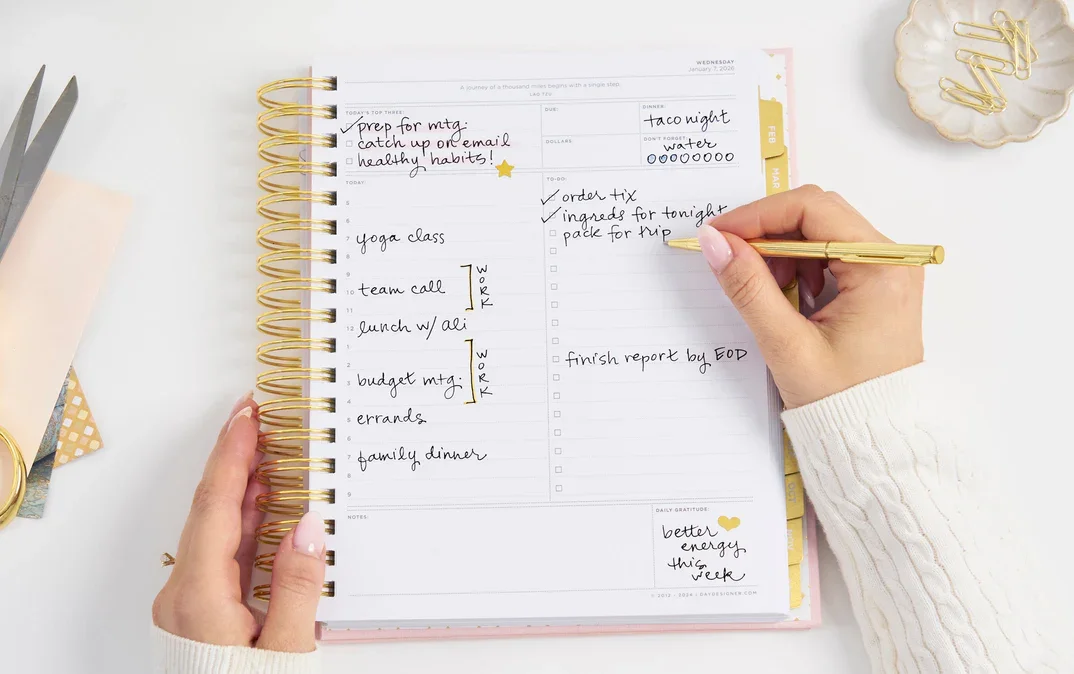 WEDNESDAY
January 7, 2026
A journey of a thousand miles begins with a single step.
LAO TZU
TODAY'S TOP THREE:
prep for mtg.
catch up on email
healthy habits!
DUE:
DOLLARS:
DINNER:
taco night
DON'T FORGET:
water
TODAY:
5
6
7 yoga class
8
9
10 team call
11
12 lunch w/ ali
1
2
3 budget mtg.
4
5 errands
6
7 family dinner
8
9
WORK
WORK
TO-DO:
order tix
ingreds for tonight
pack for trip
finish report by EOD
NOTES:
DAILY GRATITUDE:
better
energy
this
week
© 2012 - 2024 | DAYDESIGNER.COM
FEB
MAR